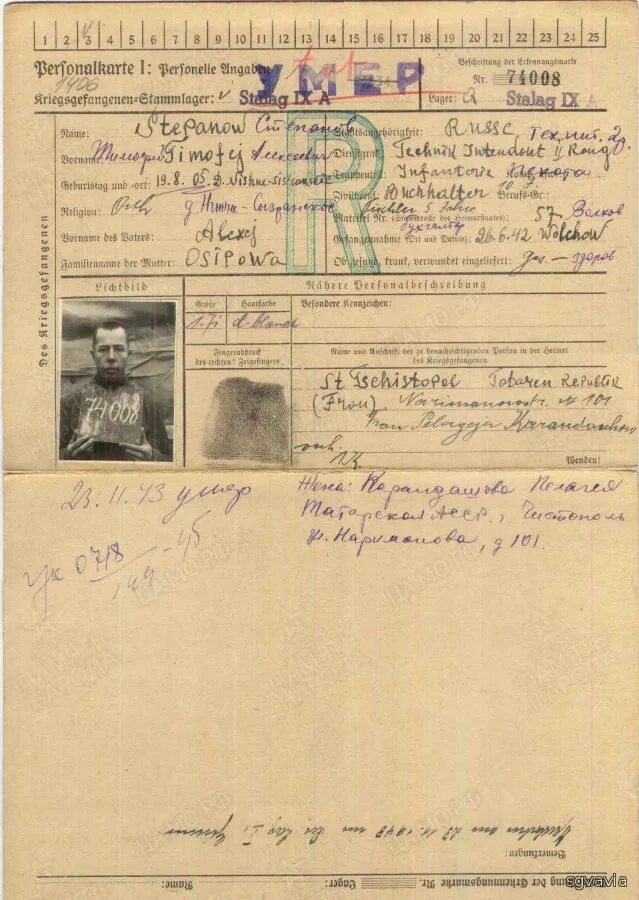 1 2 3 4 5 6 7 8 9 10 11 12 13 14 15 16 17 18 19 20 21 22 23 24 25
Personalkarte I: Personelle Angaben
УМЕР
Beschriftung der Erkennungsmarke
Nr. 74008
Kriegsgefangenen-Stammlager: Stalag IX A
Lager: Stalag IX A
Des Kriegsgefangenen
Name: Stepanow Степанов
Staatsangehörigkeit: RUSSE
Vorname: Тимофей Timofej Алексеевич
Dienstgrad: Technik Intendant II Rang
Geburtstag und -ort: 19.8.05
Truppenteil: Infanterie пехота
Zivilberuf: Buchhalter Berufs-Gr.:
Religion: Orth
Tischler 5 Jahre
бухгалтер
Matrikel Nr. (Stammrolle des Heimatstaates): 57. Волхов
Vorname des Vaters: Alexej
Gefangennahme (Ort und Datum): 26.6.42 Wolchow
Familienname der Mutter: OSIPOWA
Ob gesund, krank, verwundet eingeliefert: ges. – здоров
Lichtbild
Nähere Personalbeschreibung
Größe Haarfarbe Besondere Kennzeichen:
1.71 d. blond
Fingerabdruck
des rechten! Zeigefingers
Name und Anschrift der zu benachrichtigenden Person in der Heimat
des Kriegsgefangenen
74008
St Tschistopol Tataren Republik
(Frau) Narimanowstr. № 101
Frau Pelageja
Wenden!
23.11.43 умер
Жена: Карандашова Пелагея
Татарская АССР, г. Чистополь
ул. Нариманова, д 101.
0718
Bemerkungen:
Name: Lager: Nr. der Erkennungsmarke
sgvavia